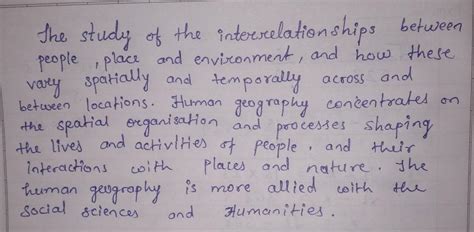 The study of the interrelationships between
people, place and environment, and how these
vary spatially and temporally across and
between locations. Human geography concentrates on
the spatial organisation and processes shaping
the lives and activities of people, and their
interactions with places and nature. The
human geography is more allied with the
social sciences and Humanities.